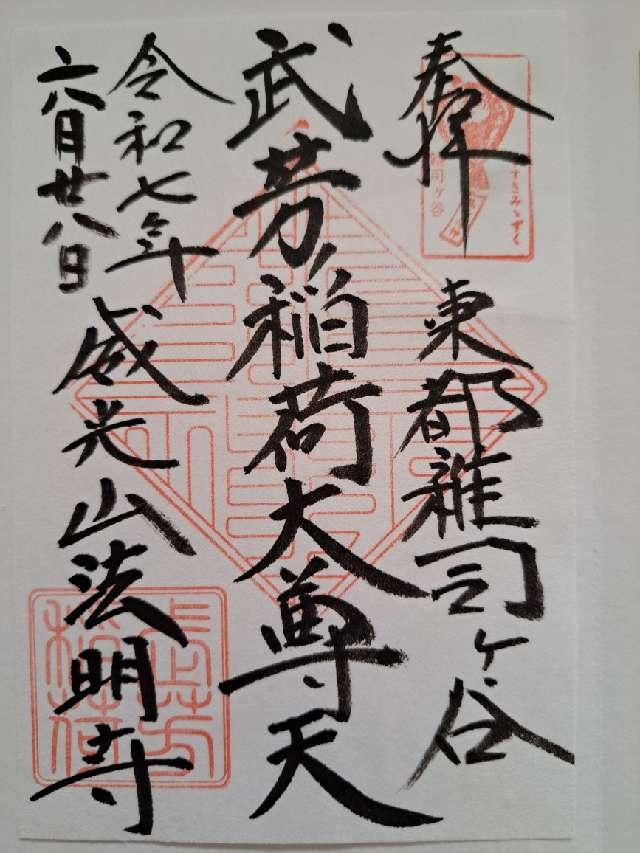 奉拝
東都雑司ヶ谷
すすきみゝずく
雑司ヶ谷
武芳稲荷大尊天
令和七年
六月廿八日
威光山法明寺
武芳
稲荷